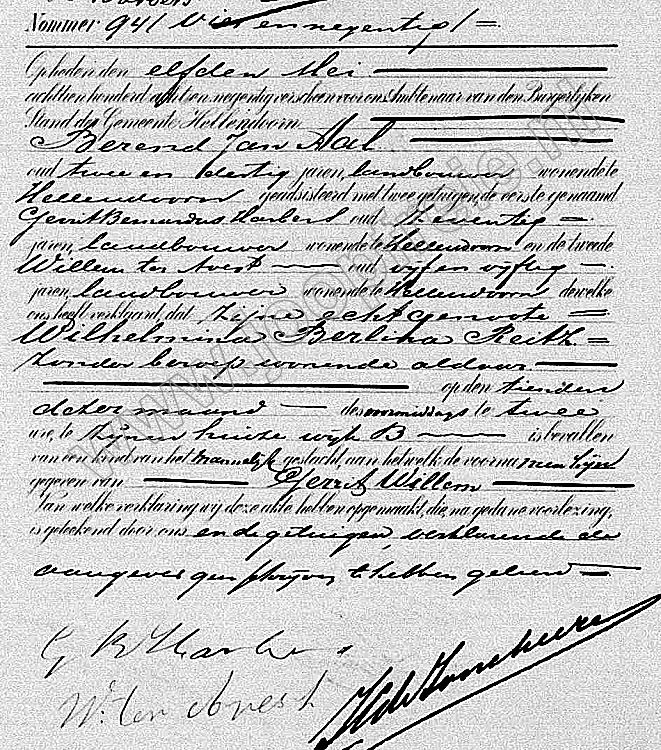 Nommer 94 / Vier en negentig / =
Op heden den elfden Mei
achttien honderd acht en negentig verscheen voor ons Ambtenaar van den Burgerlijken
Stand der Gemeente Hellendoorn
Berend Jan Aal
oud twee en dertig jaren, landbouwer wonende te
Hellendoorn geadsisteerd met twee getuigen, de eerste genaamd
Gerrit Bernardus Harbers oud zeventig =
jaren, landbouwer wonende te Hellendoorn en de tweede
Willem ten Avest — oud vijf en vijftig —
jaren, landbouwer wonende te Hellendoorn dewelke
ons heeft verklaard, dat zijne echtgenoote =
Wilhelmina Berlina Reith =
zonder beroep wonende aldaar
op den tienden
dezer maand — des voormiddags te twee
ure, te zijnen huize wijk B — is bevallen
van een kind van het mannelijk geslacht, aan hetwelk de voornamen zijn
gegeven van — Gerrit Willem —
Van welke verklaring wij deze akte hebben opgemaakt, die, na gedane voorlezing,
is geteekend door ons en de getuigen, verklarende de
aangever geen schrijven te hebben geleerd =
G B Harbers
W. ten Avest